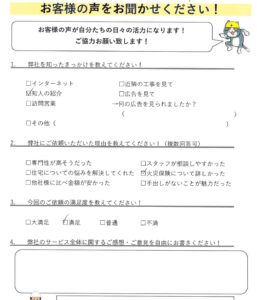 お客様の声をお聞かせください！
お客様の声が自分たちの日々の活力になります！
ご協力お願い致します！
1. 弊社を知ったきっかけを教えてください！
□インターネット □近隣の工事を見て
☑知人の紹介 □広告を見て
□訪問営業 →何の広告を見られましたか？
( )
□その他 ( )
2. 弊社にご依頼いただいた理由を教えてください！（複数回答可）
□専門性が高そうだった □スタッフが相談しやすかった
□住宅についての悩みを解決してくれた ☑火災保険について詳しかった
□他社様に比べ金額が安かった □手出しがないことが魅力だった
3. 今回のご依頼の満足度を教えてください！
□大満足 ☑満足 □普通 □不満
4. 弊社のサービス全体に関するご感想・ご意見を自由にお書きください！